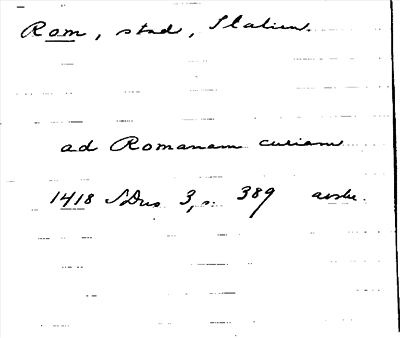 Rom, stad, Italien.
ad Romanam curiam
1418 SDns 3, s. 389 avskr.